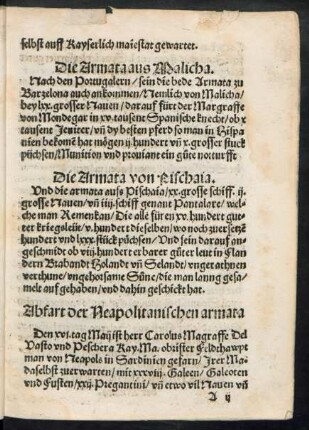 selbst auff Kayserlich maiestat gewartet.
Die Armata aus Malicha.
Nach den Portugalern / sein die bede Armata zu
Barzelona auch ankommen / Nemlich von Malicha /
bey lxx. grosser Nauen / darauf fürt der Margraffe
von Mondegar in xv. tausent Spanische knecht / ob x
tausent Jeniter / vñ dy besten pferd so man in Hispa
nien bekomē hat mögen ij. hundert vñ x. grosser stuck
püchsen / Munition vnd prouiant ein gute notturfft
Die Armata von Pischaia.
Und die armata auſs Pischaia / xx. grosse schiff. ij.
grosse Nauen / vñ iiij. schiff genant Pontalare / wel-
che man Remenkan / Die alle für en xv. hundert gut-
ter kriegsleüt / v. hundert dieselben / wo noch zuersetzē
hundert vnd lxxx. stück püchsen / Und sein darauf an-
geschmidt ob viij. hundert erbarer güter leut in Flan
dern Brabandt Holandt vñ Selandt / vngerathnen
verthune / vngehorsame Süne / die man lanng gesa-
melt auf gehaben / vnd dahin geschickt hat.
Abfart der Neapolitanischen armata
Den xvi. tag Maij ist herr Carolus Magraffe Del
Vasto vnd Peschera Kay. Ma. obrister Feldthawpt
man von Neapols in Sardinien gefarn / Irer Ma-
daselbst zuerwarten / mit xxxviij. Galeen / Galeoten
und Fusten / xxij. Pregantini / vñ etwo vil Nauen vñ
A ij